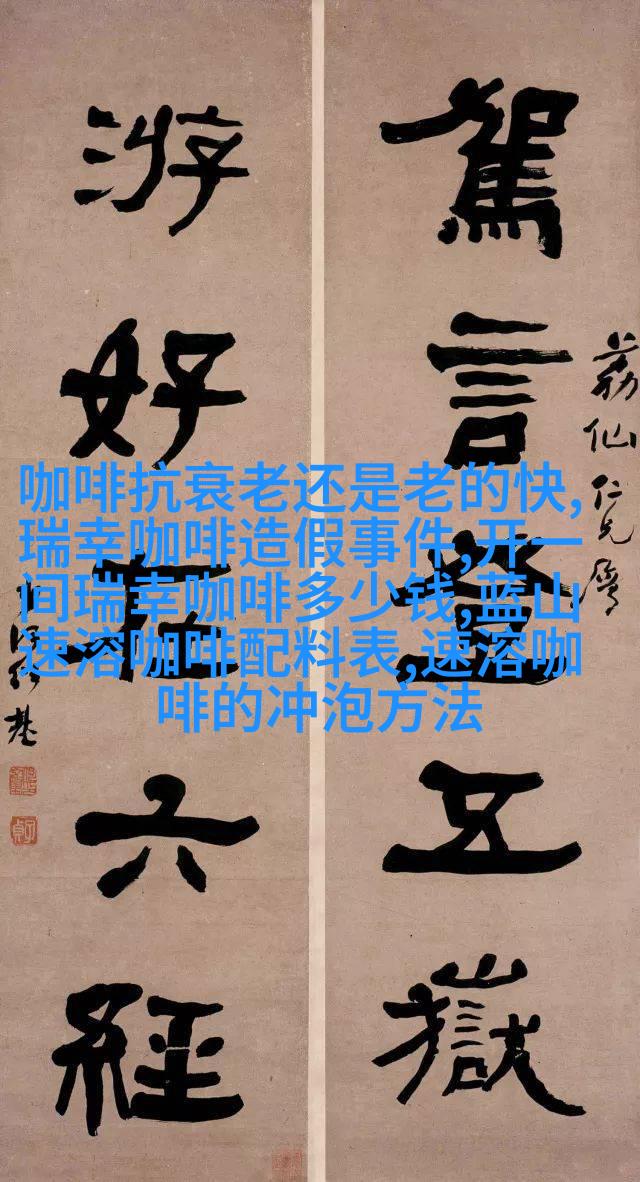 荔仙仁兄屬
駕言登五嶽
游好在六經
何紹基
子貞
咖啡抗衰老还是老的快,
瑞幸咖啡造假事件,开一
间瑞幸咖啡多少钱,蓝山
速溶咖啡配料表,速溶咖
啡的冲泡方法